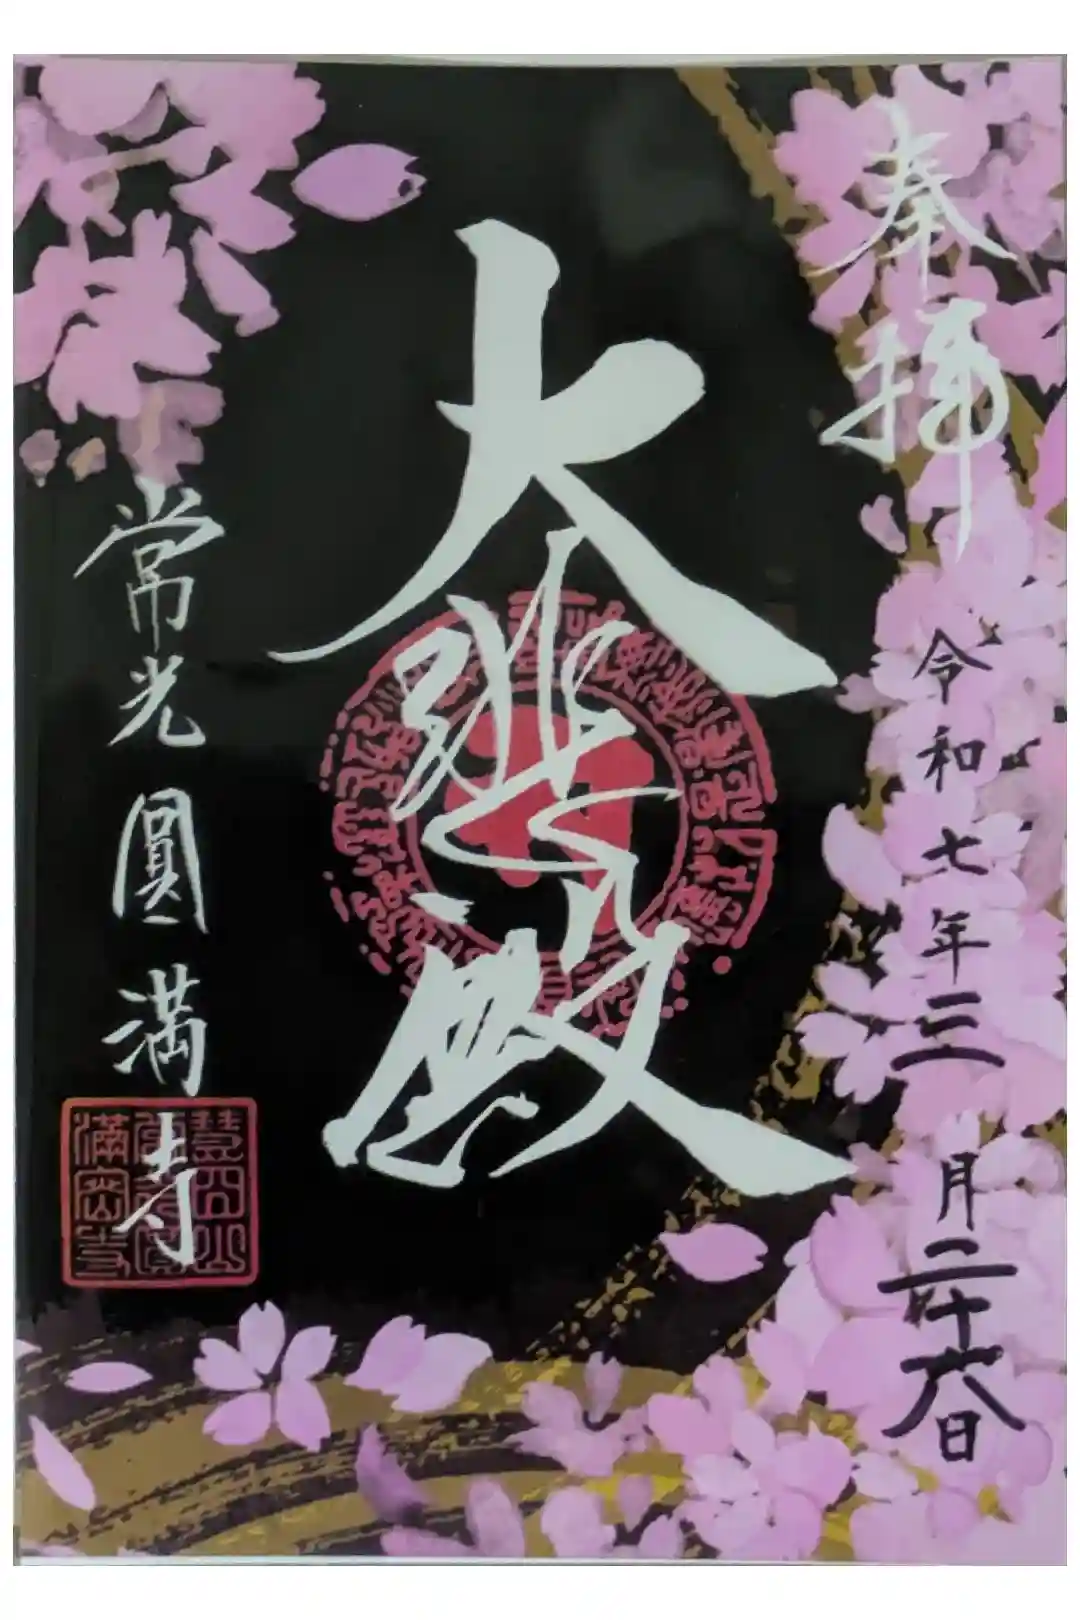 奉拝
令和七年三月二十六日
大悲殿
常光圓満寺